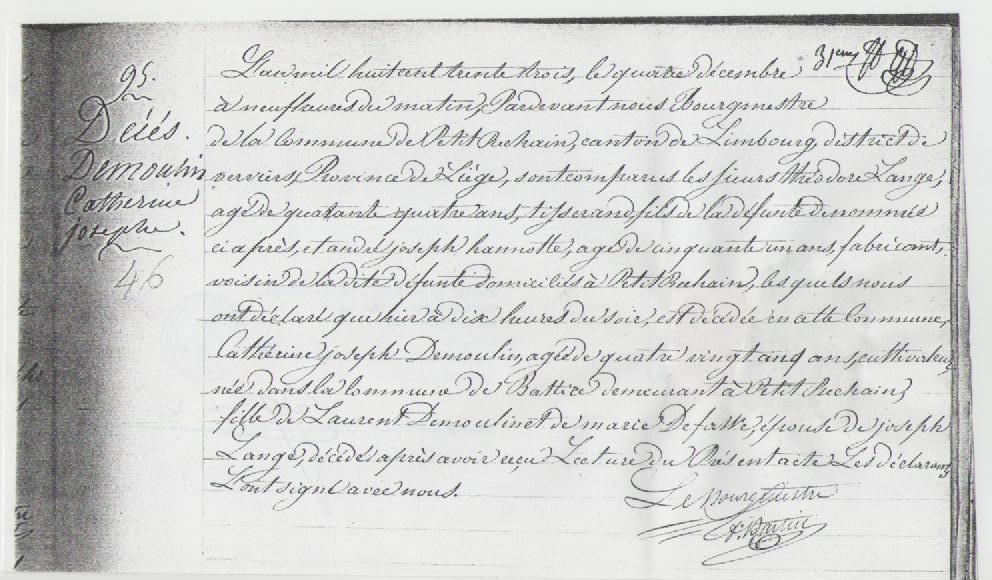 95.
Décés.
Demoulin
Catherine
josephe.
46
L'an mil huit cent trente trois, le quatre décembre
à neuf heures du matin, Pardevant nous Bourgmestre
de la Commune de Petit Rechain, canton de Limbourg, district de
verviers, Province de Liége, sont comparus les sieurs théodore Lange,
agé de quarante quatre ans, tisserand, fils de la défunte denommée
ci après, et andré joseph hannotte, agé de cinquante un ans, fabricant,
voisin de la dite défunte domiciliés à Petit Rechain, les quels nous
ont déclaré que hier à dix heures du soir, est décédée en cette Commune,
Catherine joseph Demoulin, agée de quatre vingt cinq ans, cultivateur,
née dans la Commune de Battice demeurant à Petit Rechain,
fille de Laurent Demoulin et de marie Defasse, épouse de joseph
Lange, décédé, après avoir reçu Lecture du Présent acte Les déclarants
L'ont signé avec nous.
Le Bourgmestre